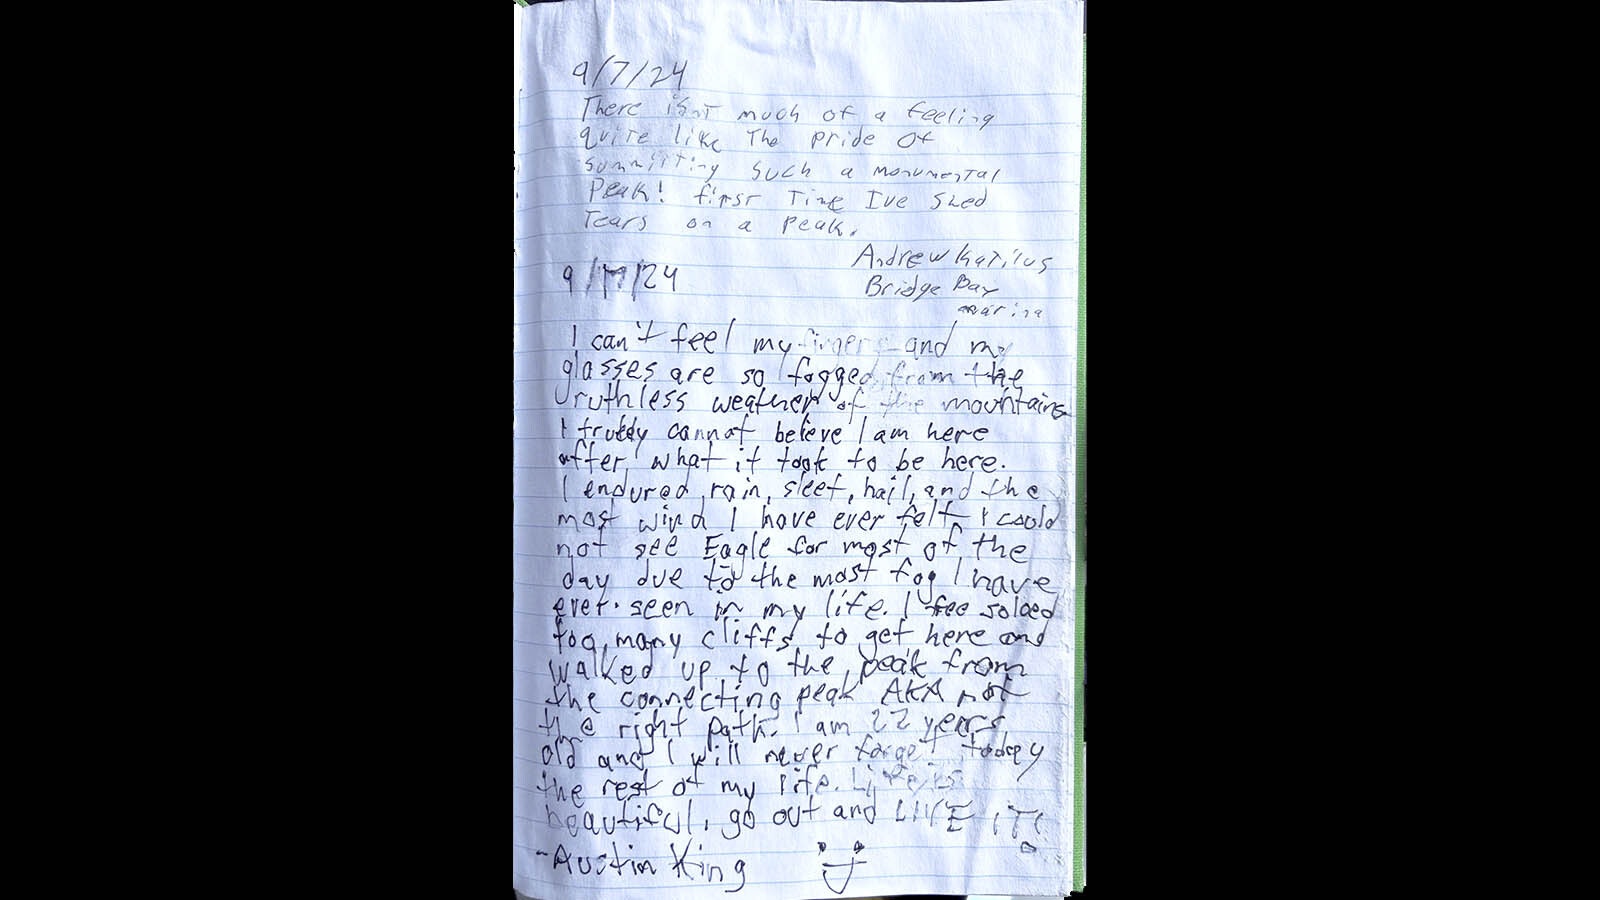 9/7/24
There isnt much of a feeling
quite like The pride of
summitting such a monumental
Peak! first Time Ive shed
Tears on a peak.
Andrew
Bridge Bay
marina
9/17/24
I can't feel my fingers and my
glasses are so fogged from the
ruthless weather of the mountains
I truley cannot believe I am here
after what it took to be here.
I endured rain, sleet, hail, and the
most wind I have ever felt I could
not see Eagle for most of the
day due to the most fog I have
ever seen in my life. I free soloed
too many cliffs to get here and
walked up to the peak from
the connecting peak AKA not
the right path. I am 22 years
old and I will never forget today
the rest of my life. Life is
beautiful, go out and LIVE IT!
-Austin King